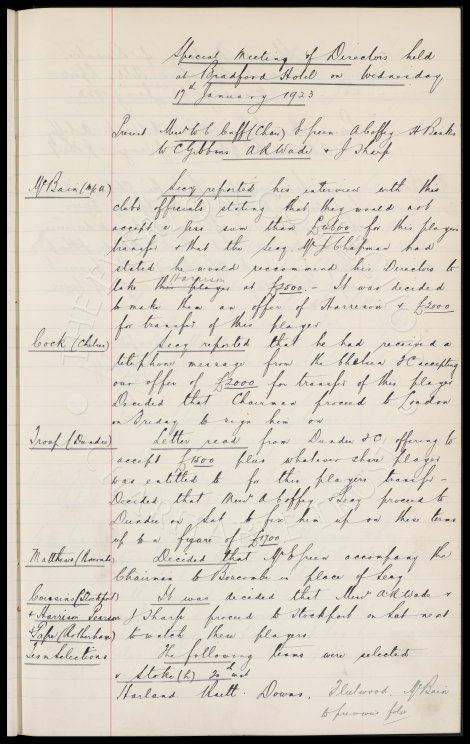 Special Meeting of Directors held
at Bradford Hotel on Wednesday
17th January 1923
Present Messrs W C Cuff (Chair) E Green A Coffey H Banks
W C Gibbins A R Wade & J Sharp
McBain (M/c U)
Secy reported his interview with this
clubs officials stating that they would not
accept a less sum than £4600 for this players
transfer & that the Secy Mr J Chapman had
stated he would recommend his Directors to
take Harrison at £2500.- It was decided
to make them an offer of Harrison & £2000
for transfer of this player
Cock (Chelsea)
Secy reported that he had received a
telephone message from the Chelsea FC accepting
our offer of £2000 for transfer of this player
Decided that Chairman proceed to London
on Friday to sign him on
Troop (Dundee)
Letter read from Dundee FC offering to
accept £1500 plus whatever share player
was entitled to for this players transfer -
Decided that Messrs A Coffey & Secy proceed to
Dundee on Sat to fix him up on these terms
up to a figure of £1700
Matthews (Boscombe)
Decided that Mr E Green accompany the
Chairman to Boscombe in place of Secy
Cousins (Stockport)
It was decided that Messrs A R Wade &
& Harrison
J Sharp proceed to Stockport on Sat next
(Rotherham)
to watch these players
Team Selections
The following teams were selected
v Stoke (h) 20th inst
Harland Raitt. Downs, Fleetwood, McBain
to previous folio